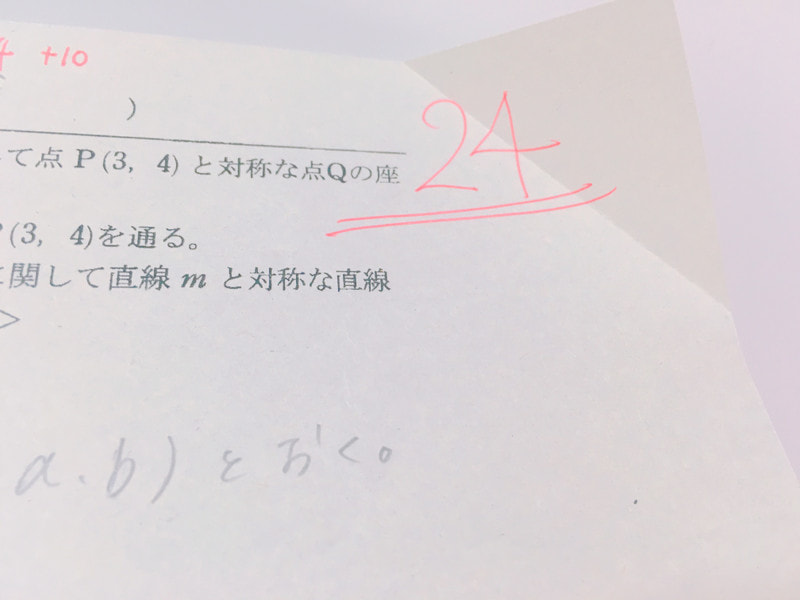 4 +10
)
24
て点 P(3, 4) と対称な点Qの座
P(3, 4)を通る。
に関して直線 m と対称な直線
>
a.b)とおく。